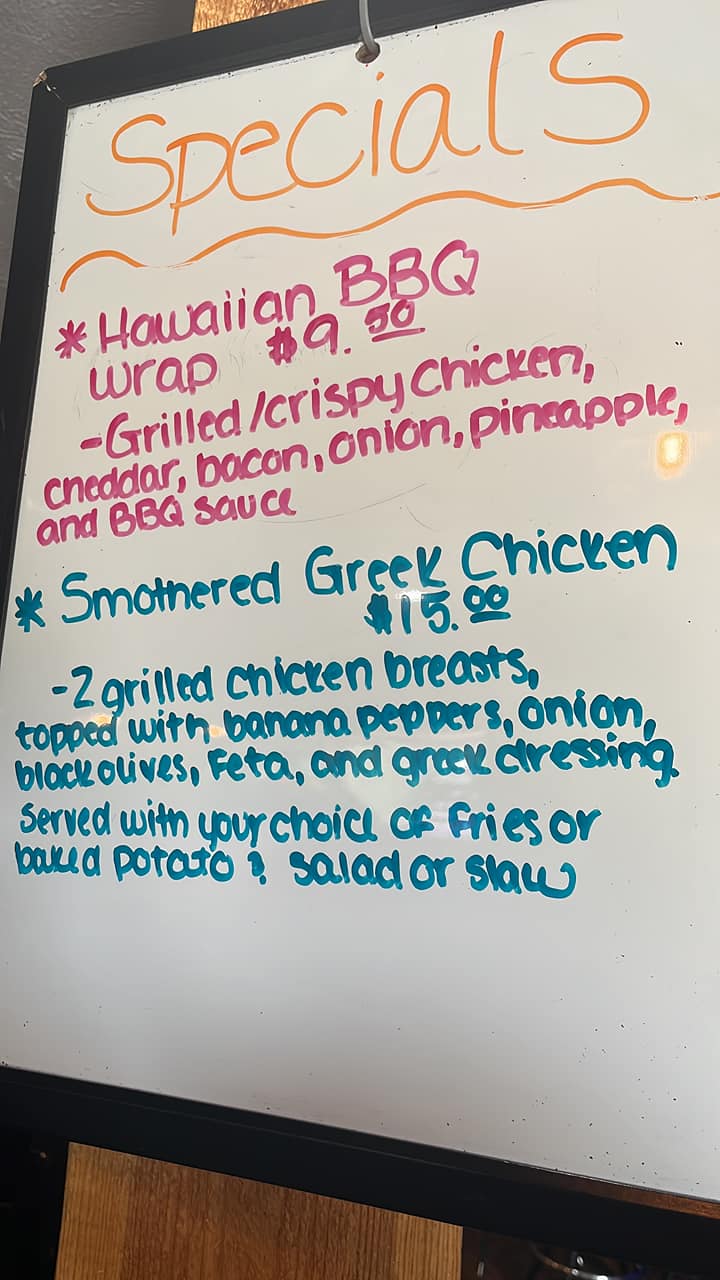 Specials
* Hawaiian BBQ
wrap $9.50
-Grilled/crispy chicken,
cheddar, bacon, onion, pineapple,
and BBQ sauce
* Smothered Greek Chicken
$15.00
-2 grilled chicken breasts,
topped with banana peppers, onion,
black olives, Feta, and greek dressing.
Served with your choice of fries or
baked potato & salad or slaw